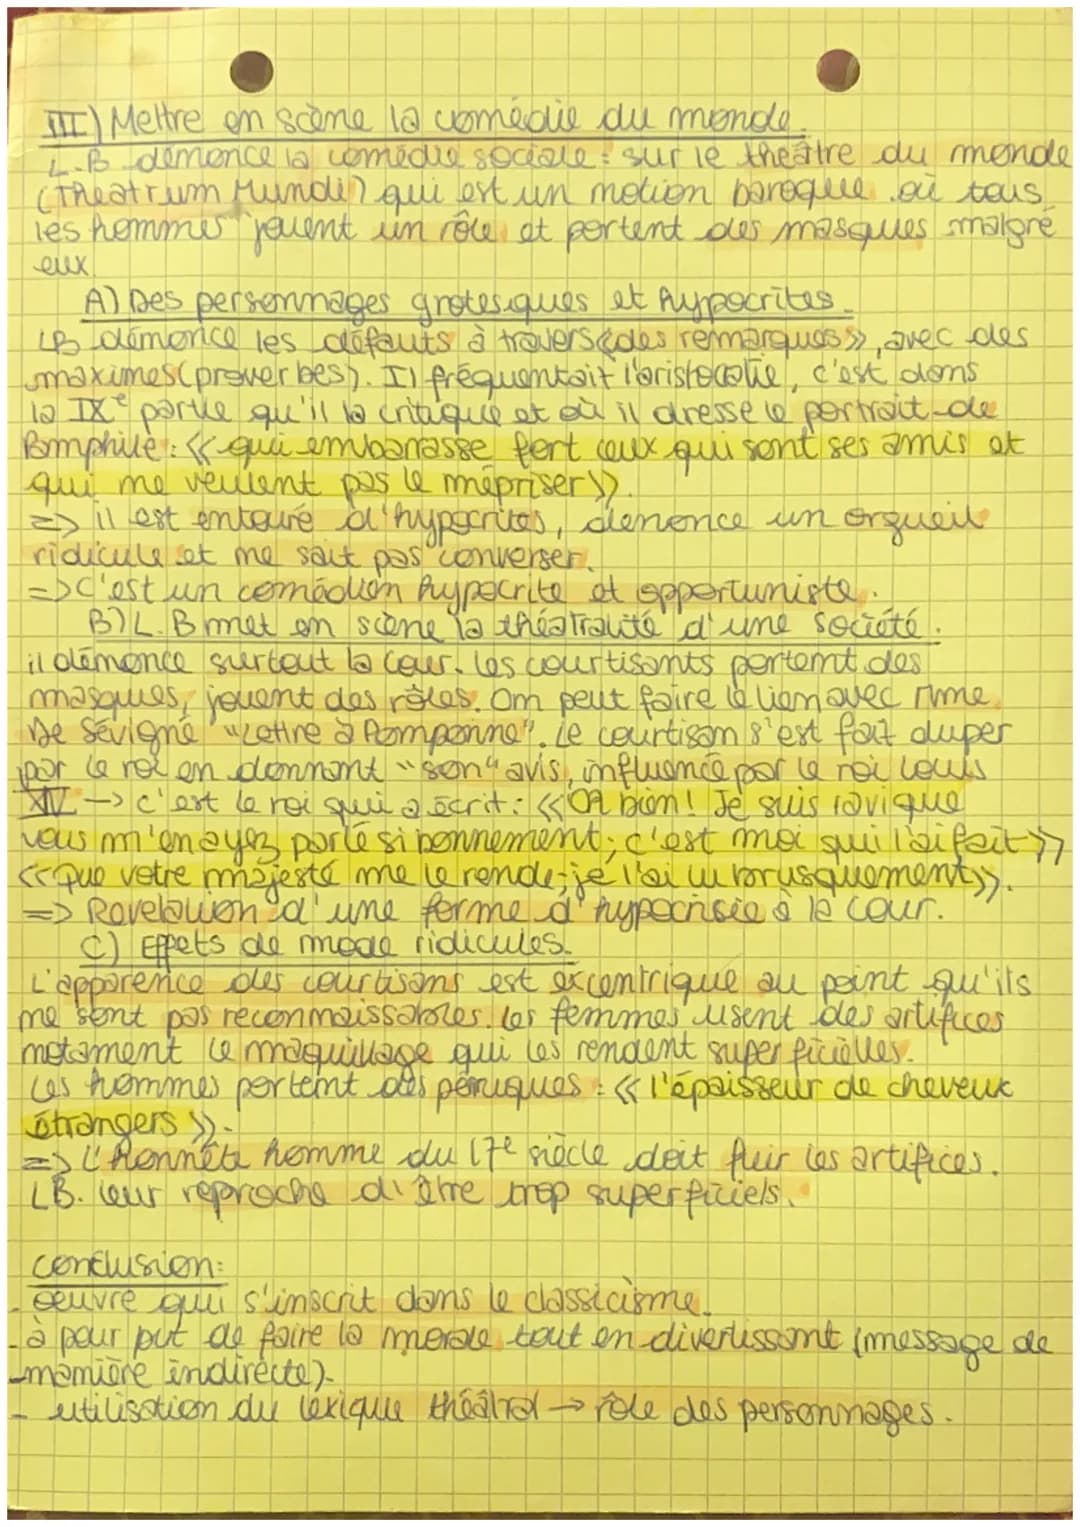 III) Mettre en scène la comédie du monde.
L.B dénonce la comédie sociale : sur le théâtre du monde
(Theatrum Mundi) qui est un notion baroque où tous
les hommes jouent un rôle et portent des masques malgré
eux.
A) Des personnages grotesques et hypocrites.
LB dénonce les défauts à travers «des remarques», avec des
maximes (proverbes). Il fréquentait l'aristocatie, c'est dans
la IXe partie qu'il la critique et où il dresse le portrait de
Pamphile : « qui embarasse fort ceux qui sont ses amis et
qui ne veulent pas le mépriser ».
=> il est entouré d'hypocrites, dénonce un orgueil
ridicule et ne sait pas converser.
=> C'est un comédien hypocrite et opportuniste.
B) L.B met en scène la théatralité d'une société.
il dénonce surtout la cour. les courtisants portent des
masques, jouent des rôles. On peut faire le lien avec Mme
De Sévigné "Lettre à Pomponne". Le courtisan s'est fait duper
par le roi en donnant "son" avis, influencé par le roi Louis
XIV -> c'est le roi qui a écrit : « Oh bien ! Je suis ravi que
vous m'en ayez parlé si bonnement ; c'est moi qui l'ai fait »
« Que votre majesté me le rende ; je l'ai lu brusquement ».
=> Révélation d'une forme d'hypocrisie à la cour.
C) Effets de mode ridicules.
L'apparence des courtisans est excentrique au point qu'ils
ne sont pas reconnaissables. les femmes usent des artifices
notament le maquillage qui les rendent superficielles.
Les hommes portent des péruques : « l'épaisseur de cheveux
étrangers ».
=> L'honnête homme du 17e siècle doit fuir les artifices.
LB. leur reproche d'être trop superficiels.
conclusion :
- oeuvre qui s'inscrit dans le classicisme.
- à pour but de faire la morale tout en divertissant (message de
manière indirecte).
- utilisation du lexique théâtral -> rôle des personnages.